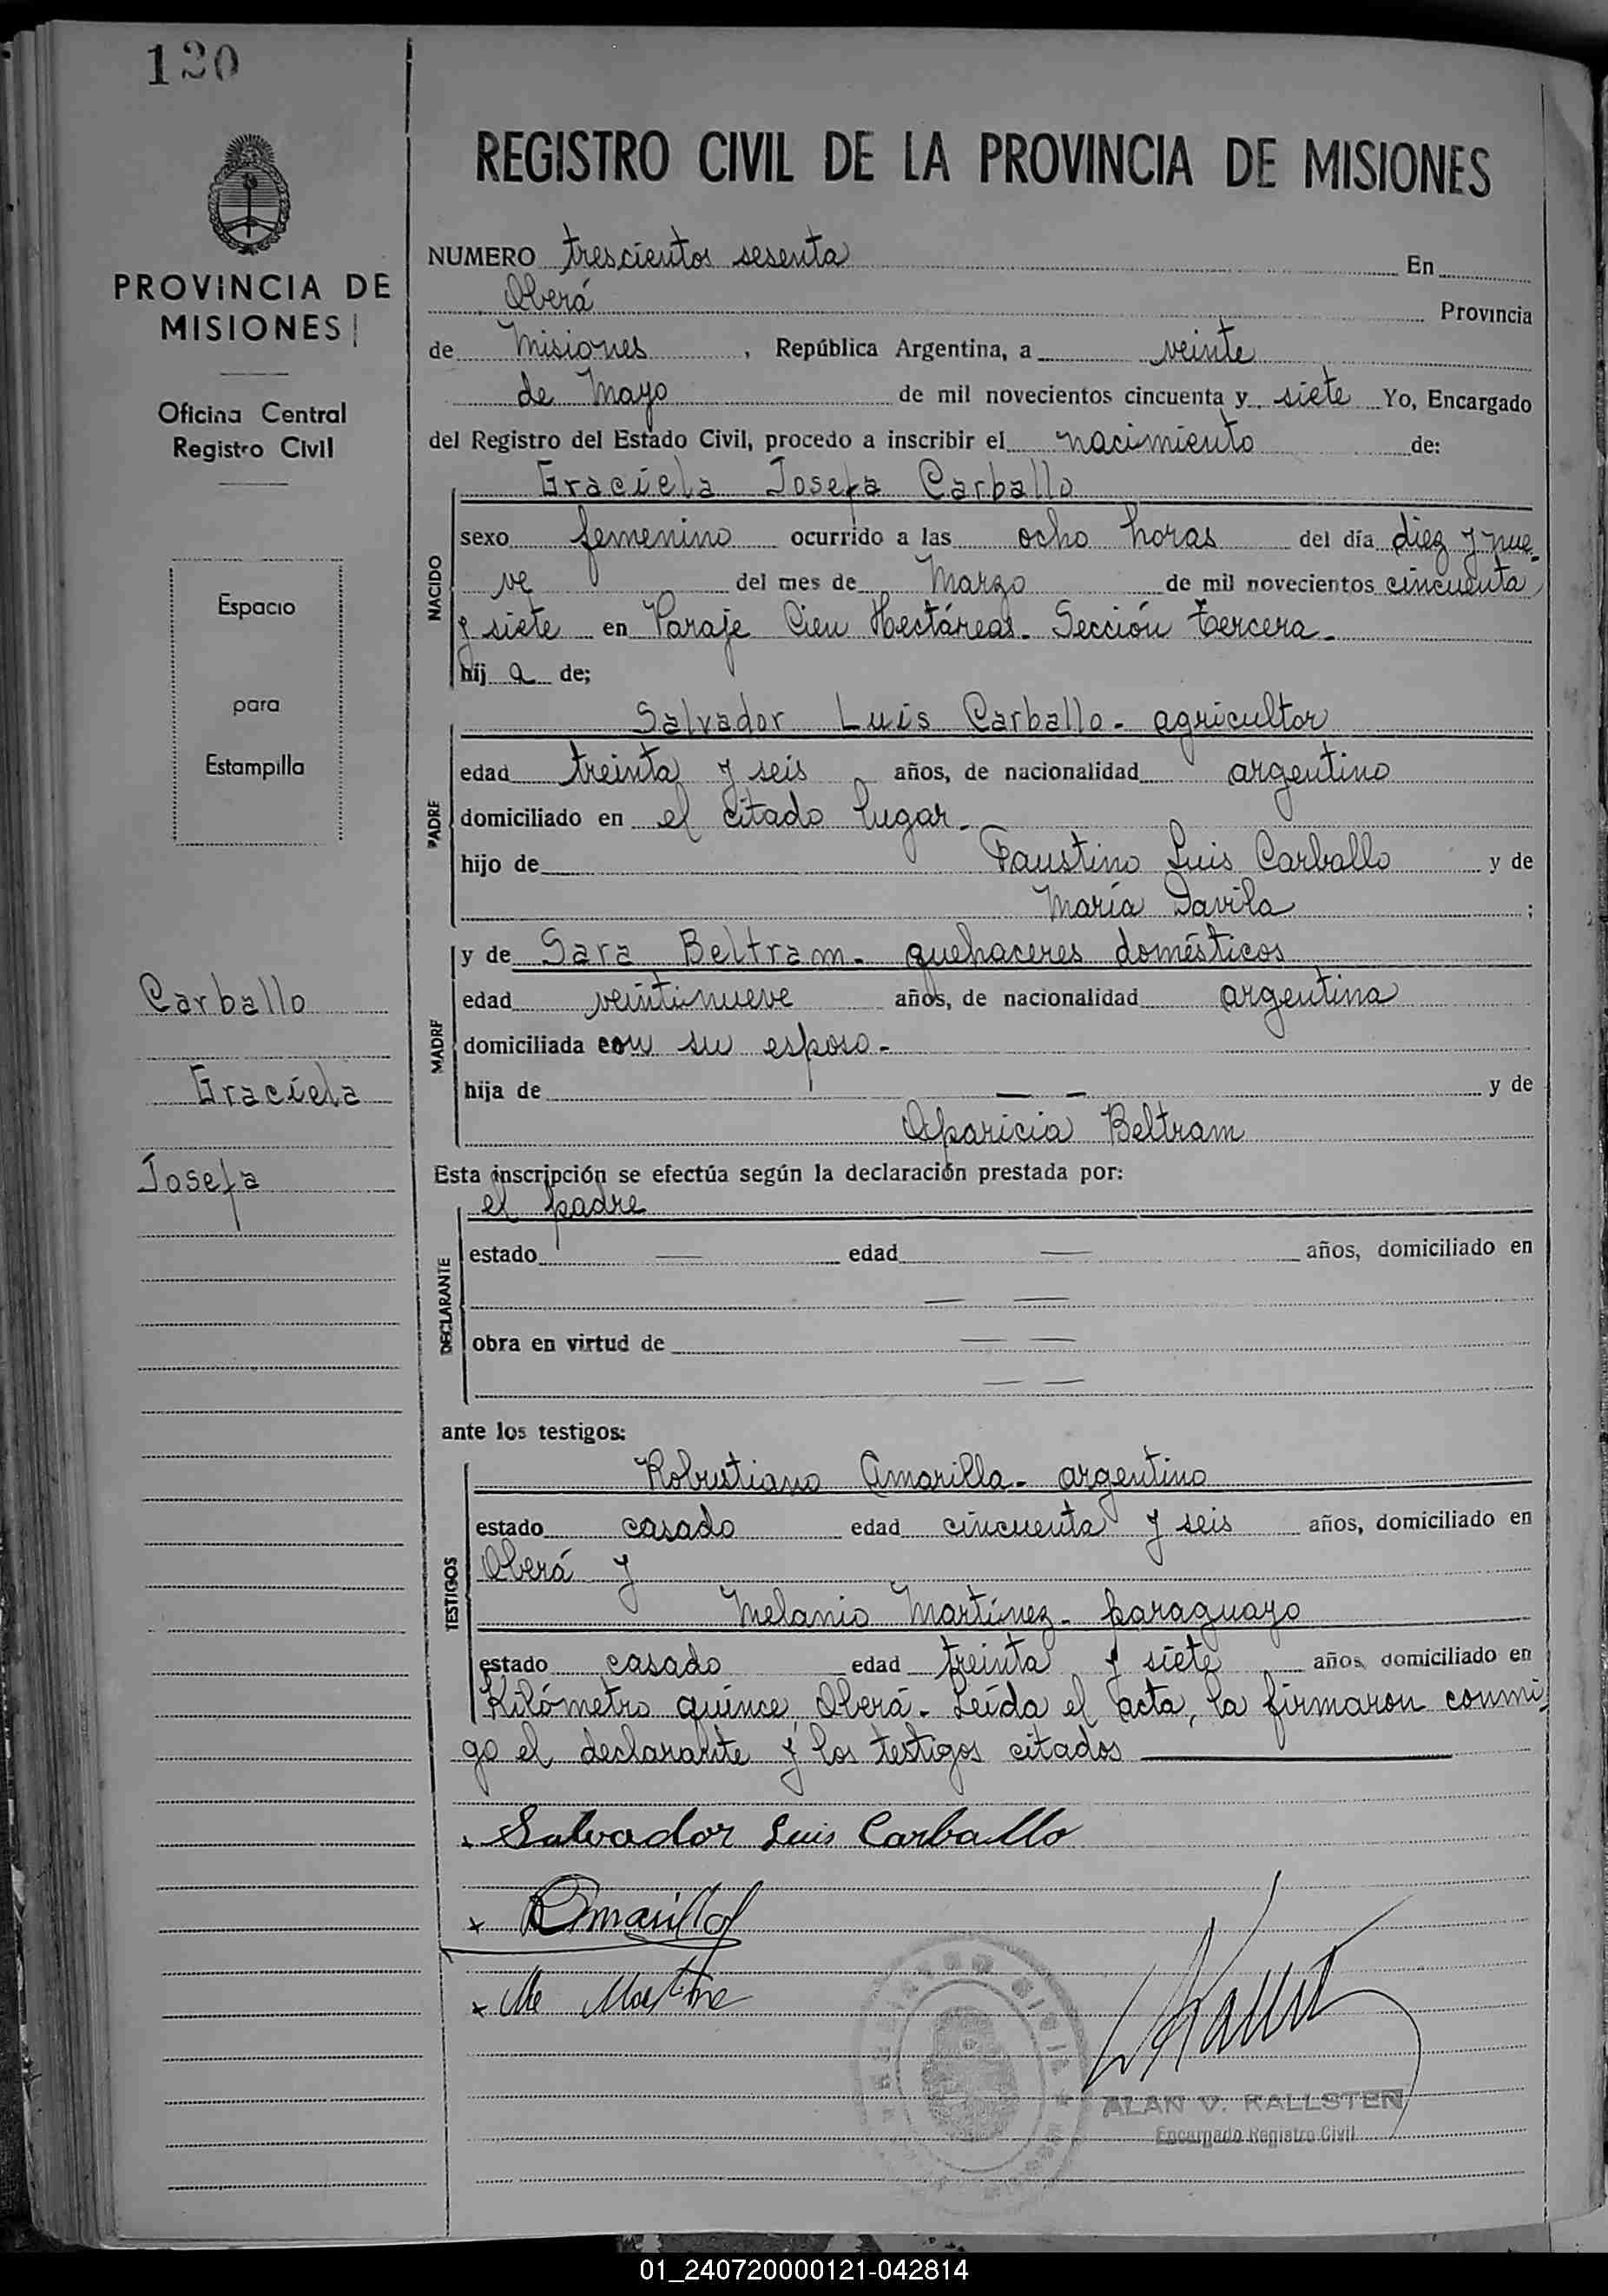 120
PROVINCIA DE
MISIONES
Oficina Central
Registro Civil
Espacio
para
Estampilla
Carballo
Graciela
Josefa
REGISTRO CIVIL DE LA PROVINCIA DE MISIONES
NUMERO trescientos sesenta En
Oberá Provincia
de Misiones, República Argentina, a veinte
de Mayo de mil novecientos cincuenta y siete Yo, Encargado
del Registro del Estado Civil, procedo a inscribir el nacimiento de:
Graciela Josefa Carballo
NACIDO
sexo femenino ocurrido a las ocho horas del día diez y nue-
ve del mes de Marzo de mil novecientos cincuenta
y siete en Paraje Cien Hectáreas- Sección tercera-
hij a de;
PADRE
Salvador Luis Carballo- agricultor
edad treinta y seis años, de nacionalidad argentino
domiciliado en el citado lugar-
hijo de Faustino Luis Carballo y de
María Davila ;
MADRE
y de Sara Beltram- quehaceres domésticos
edad veintinueve años, de nacionalidad argentina
domiciliada con su esposo-
hija de — — y de
Aparicia Beltram
Esta inscripción se efectúa según la declaración prestada por:
el padre
DECLARANTE
estado — edad — años, domiciliado en
— —
obra en virtud de — —
— —
ante los testigos:
TESTIGOS
Robustiano Amarilla- argentino
estado casado edad cincuenta y seis años, domiciliado en
Oberá y
Melanio Martínez- paraguayo
estado casado edad treinta y siete años, domiciliado en
Kilómetro quince, Oberá- Leída el acta, la firmaron conmi-
go el declarante y los testigos citados
x Salvador Luis Carballo
x RAmarilla
x Me Martine
REGISTRO CIVIL
ALAN V. KALLSTEN
Encargado Registro Civil
01_240720000121-042814